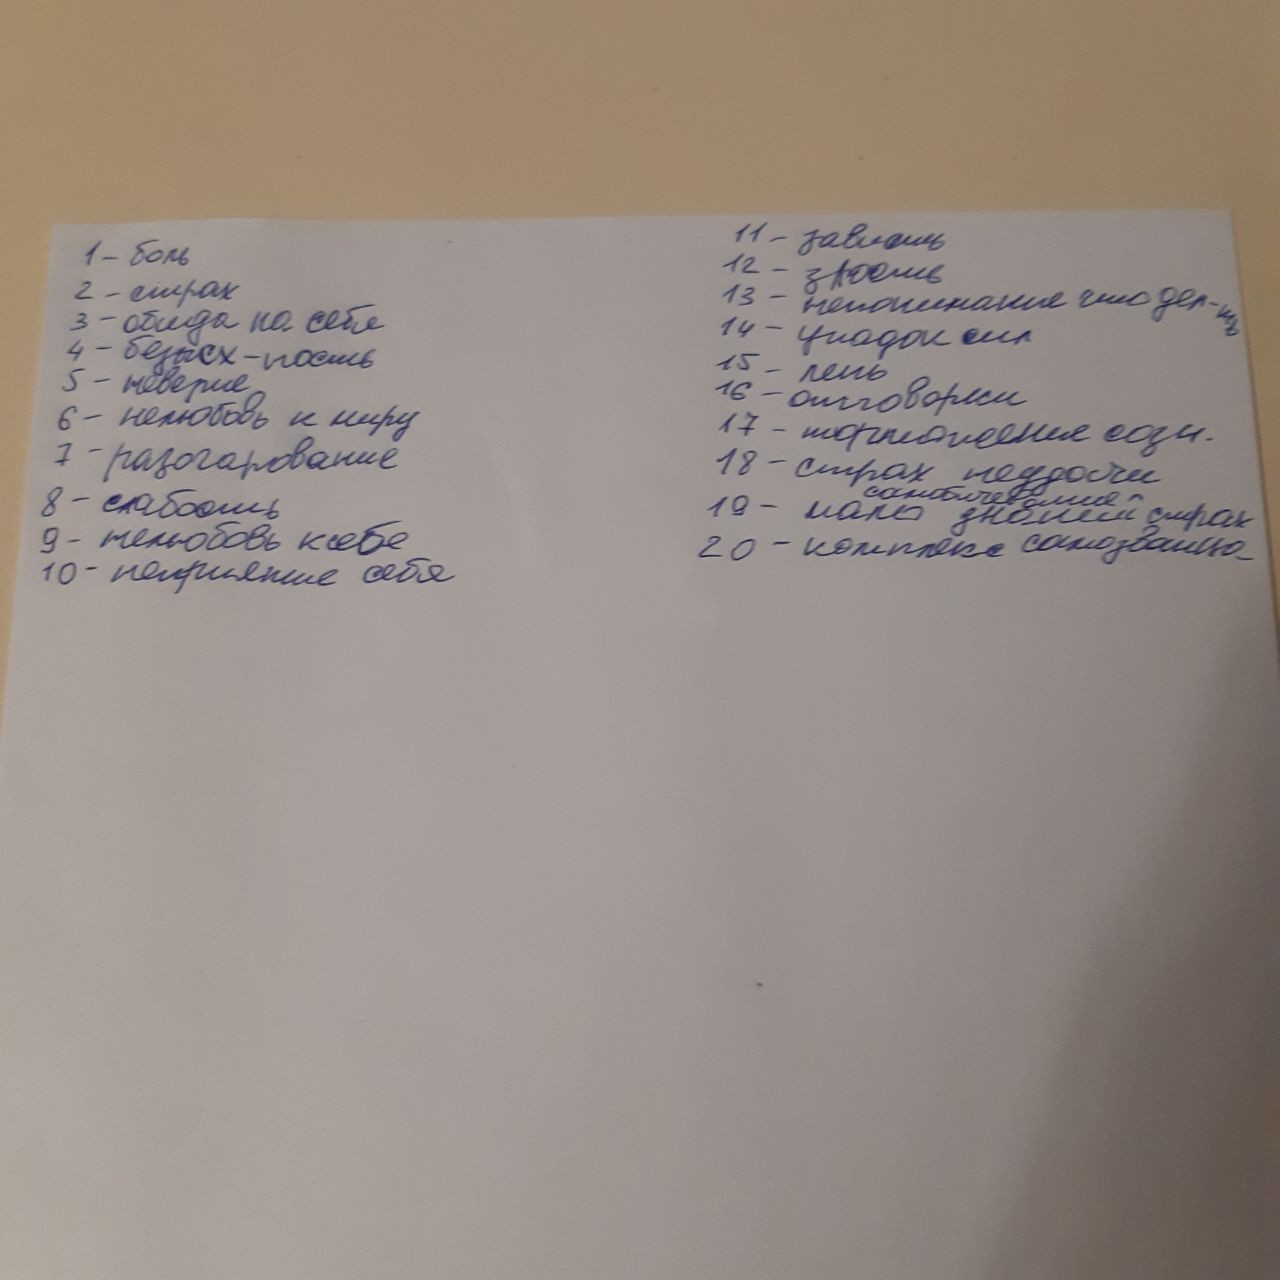 1 - боль
2 - страх
3 - обида на себя
4 - безысх-ность
5 - неверие
6 - нелюбовь к миру
7 - разочарование
8 - слабость
9 - нелюбовь к себе
10 - неприятие себя
11 - зависть
12 - злость
13 - непонимание что дел-ть
14 - упадок сил
15 - лень
16 - отговорки
17 - торможение созн.
18 - страх неудачи
самобичевание
19 - мало знаний страх
20 - комплекс самозванца